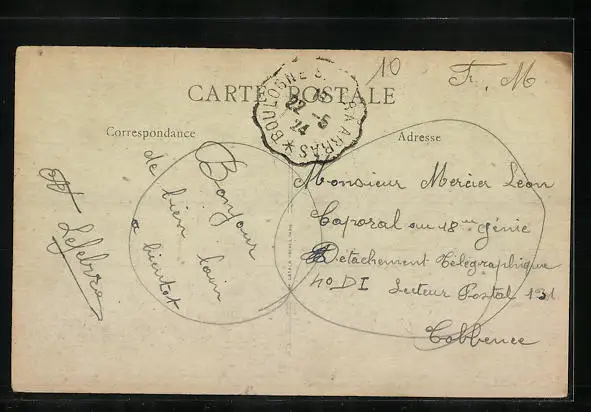 10
Fr. M
CARTE POSTALE
BOULOGNE S. M A ARRAS *
22 -5
24
Correspondance
Adresse
Bonjour
de bien loin
a bientot
Lefebvre
Monsieur Mercier Léon
Caporal au 18me génie
Détachement télégraphique
40 DI Secteur Postal 131
Coblence